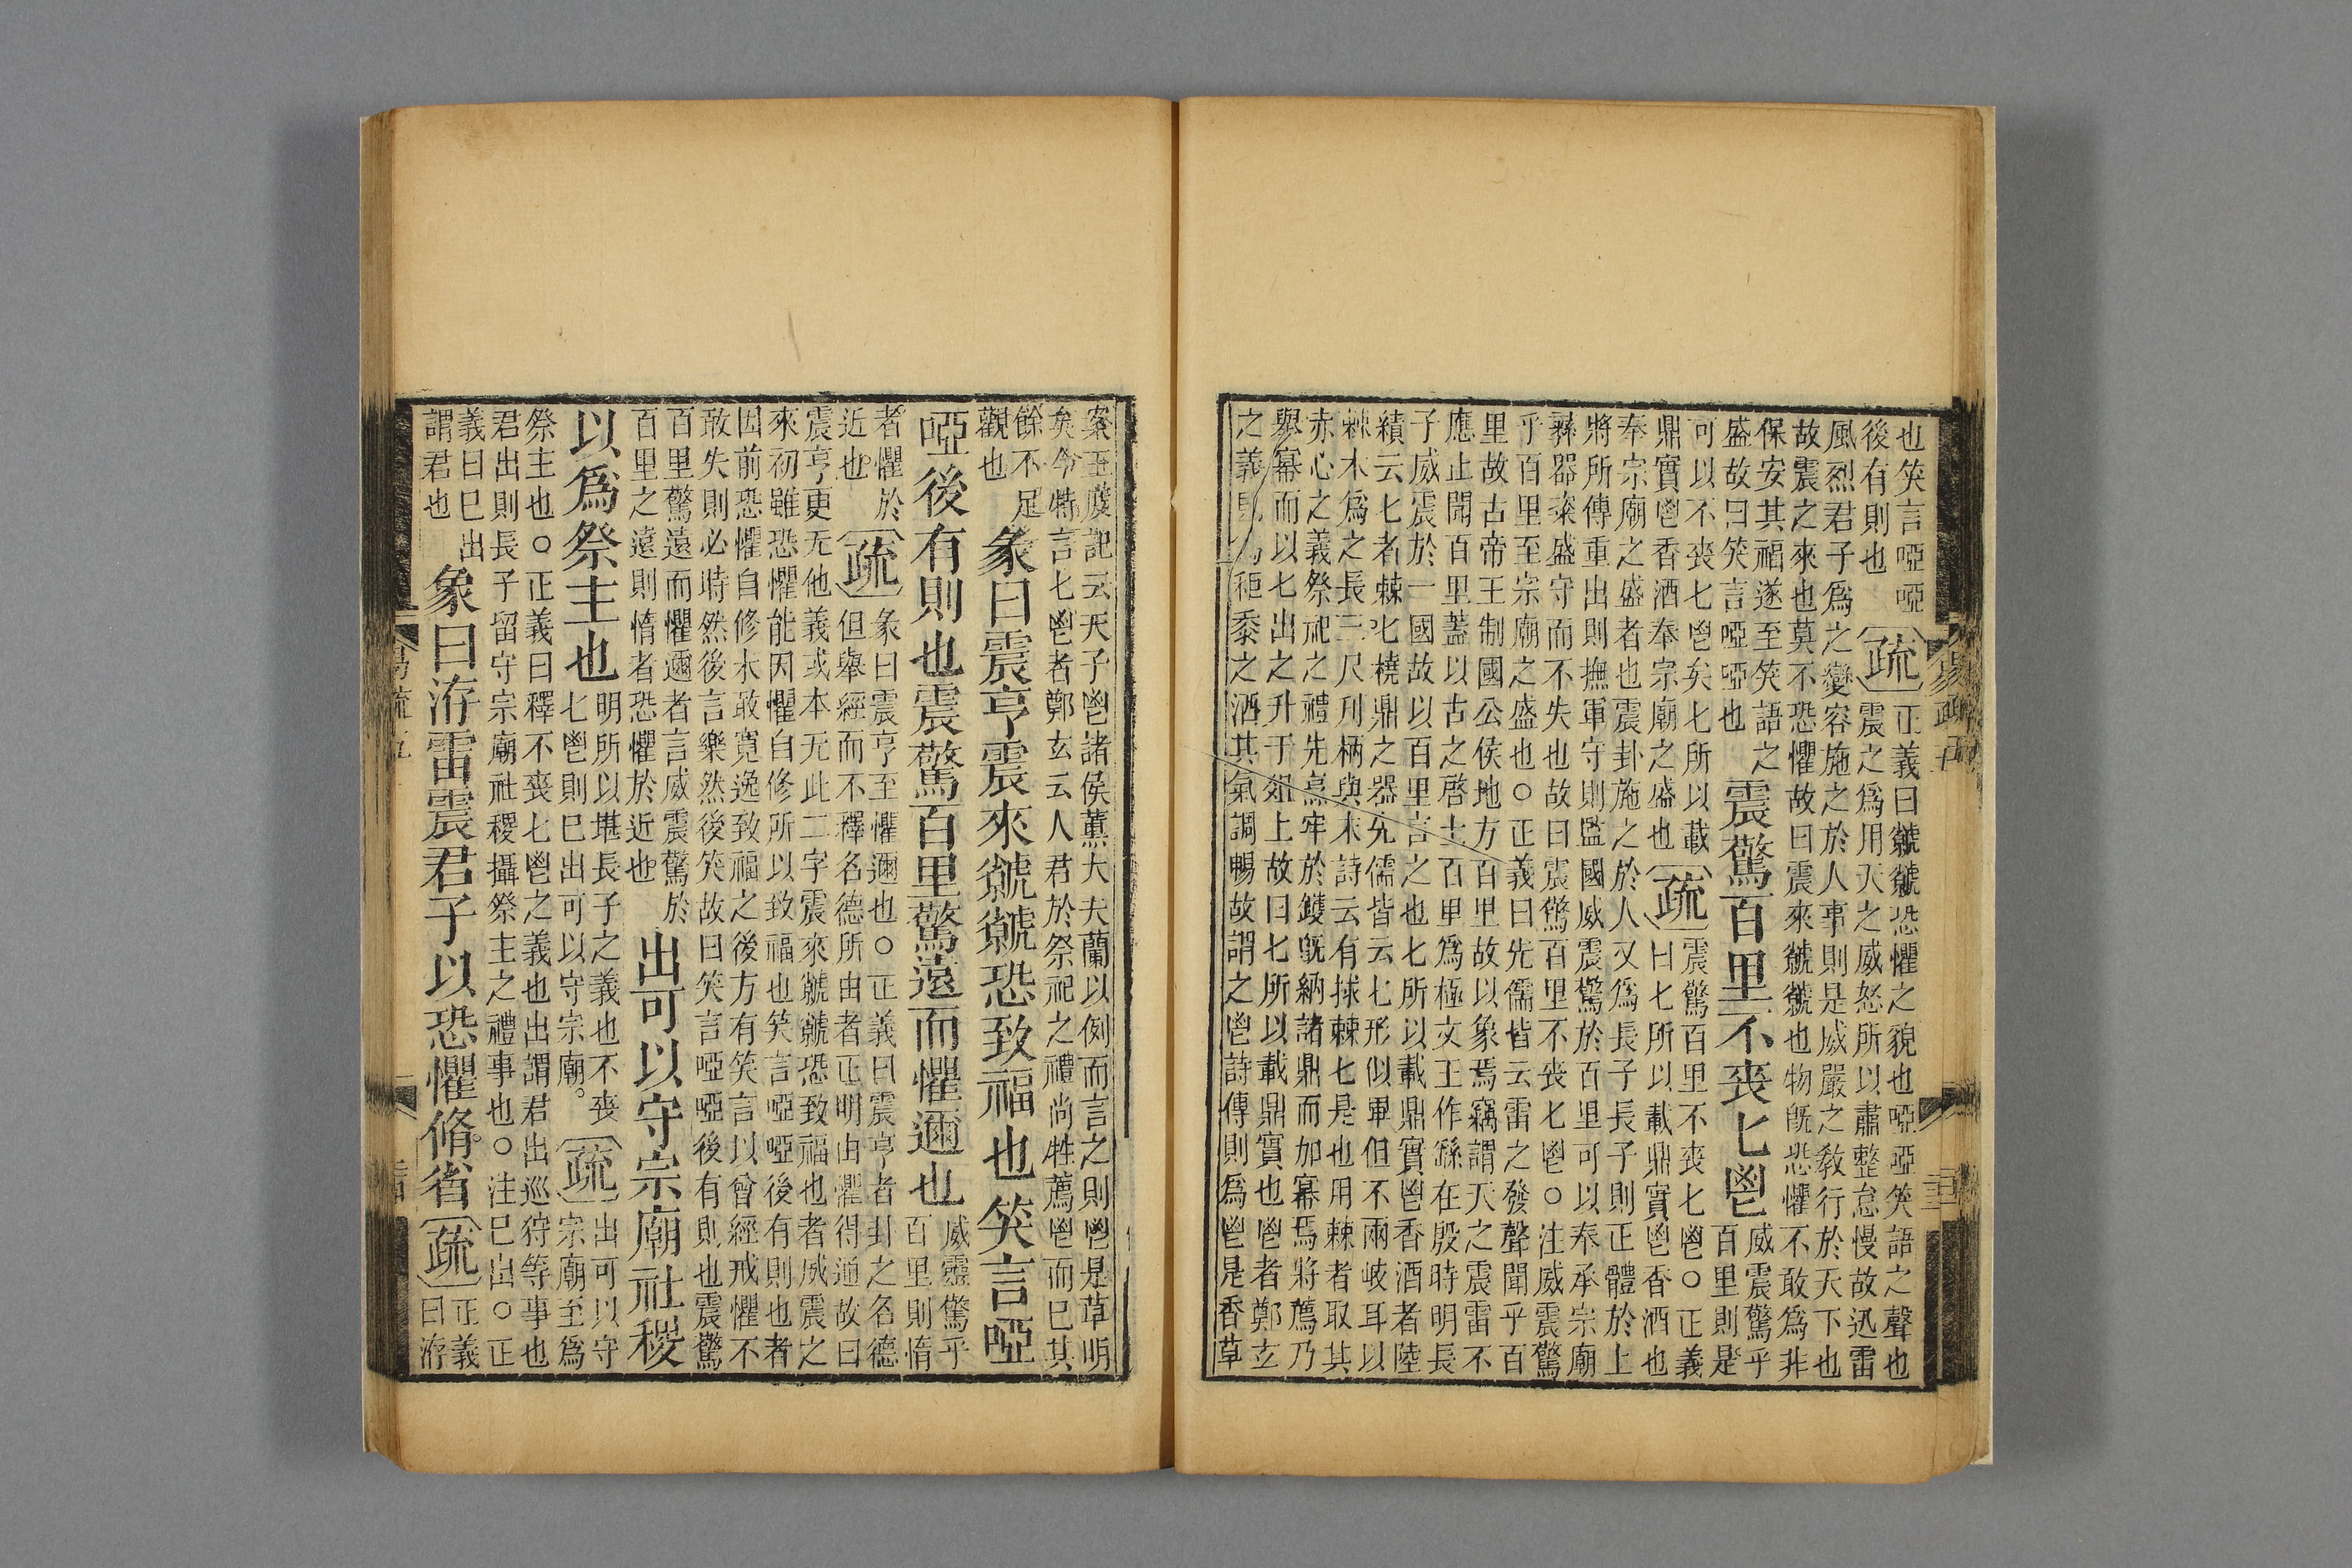 也笑言啞啞
後有則也
疏
正義曰虩虩恐懼之貌也啞啞笑語之聲也
震之爲用天之威怒所以肅整怠慢故迅雷
風烈君子爲之變容施之於人事則是威嚴之敎行於天下也
故震之來也莫不恐懼故曰震來虩虩也物旣恐懼不敢爲非
保安其福遂至笑語之
盛故曰笑言啞啞也
震驚百里不喪匕鬯
威震驚乎
百里則是
可以不喪匕鬯矣匕所以載
鼎實鬯香酒奉宗廟之盛也
疏
震驚百里不喪匕鬯○正義
曰匕所以載鼎實鬯香酒也
奉宗廟之盛者也震卦施之於人又爲長子長子則正體於上
將所傳重出則撫軍守則監國威震驚於百里可以奉承宗廟
彝器粢盛守而不失也故曰震驚百里不喪匕鬯○注威震驚
乎百里至宗廟之盛也○正義曰先儒皆云雷之發聲聞乎百
里故古帝王制國公侯地方百里故以象焉竊謂天之震雷不
應止聞百里蓋以古之啓土百里爲極文王作繇在殷時明長
子威震於一國故以百里言之也匕所以載鼎實鬯香酒者陸
績云匕者棘匕橈鼎之器先儒皆云匕形似畢但不兩岐耳以
棘木爲之長三尺刋柄與末詩云有捄棘匕是也用棘者取其
赤心之義祭祀之禮先烹牢於鑊旣納諸鼎而加冪焉將薦乃
舉冪而以匕出之升于俎上故曰匕所以載鼎實也鬯者鄭玄
之義則爲秬黍之酒其氣調暢故謂之鬯詩傳則爲鬯是香草
案王度記云天子鬯諸侯薰大夫蘭以例而言之則鬯是草明
矣今特言匕鬯者鄭玄云人君於祭祀之禮尚牲薦鬯而已其
餘不足
觀也
彖曰震亨震來虩虩恐致福也笑言啞
啞後有則也震驚百里驚遠而懼邇也
威震驚乎
百里則惰
者懼於
近也
疏
彖曰震亨至懼邇也○正義曰震亨者卦之名德
但舉經而不釋名德所由者正明由懼得通故曰
震亨更无他義或本无此二字震來虩虩恐致福也者威震之
來初雖恐懼能因懼自修所以致福也笑言啞啞後有則也者
因前恐懼自修未敢寬逸致福之後方有笑言以曾經戒懼不
敢失則必時然後言樂然後笑故曰笑言啞啞後有則也震驚
百里驚遠而懼邇者言威震驚於
百里之遠則惰者恐懼於近也
出可以守宗廟社稷
以爲祭主也
明所以堪長子之義也不喪
匕鬯則巳出可以守宗廟
疏
出可以守
宗廟至爲
祭主也○正義曰釋不喪匕鬯之義也出謂君出巡狩等事也
君出則長子留守宗廟社稷攝祭主之禮事也○注巳出○正
義曰巳出
謂君也
象曰洊雷震君子以恐懼脩省
疏
正義
曰洊